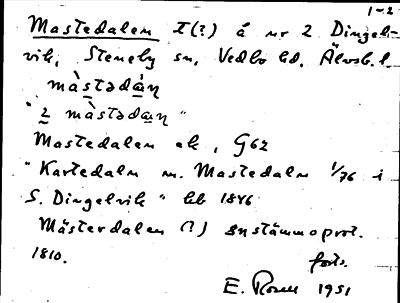 1-2
Mastedalen t(?) å nr 2 Dingel-
vik, Steneby sn, Vedbo hd, Älvsb. l.
màstədàn
" 2 màstədan "
Mastedalen ek, G62
" Kartedalm m. Mastedalm 1/76 i
S. Dingelvik " hb 1846
Mästerdalen (?) Enstämmoprot.
1810. forts.
E. Rosen 1951